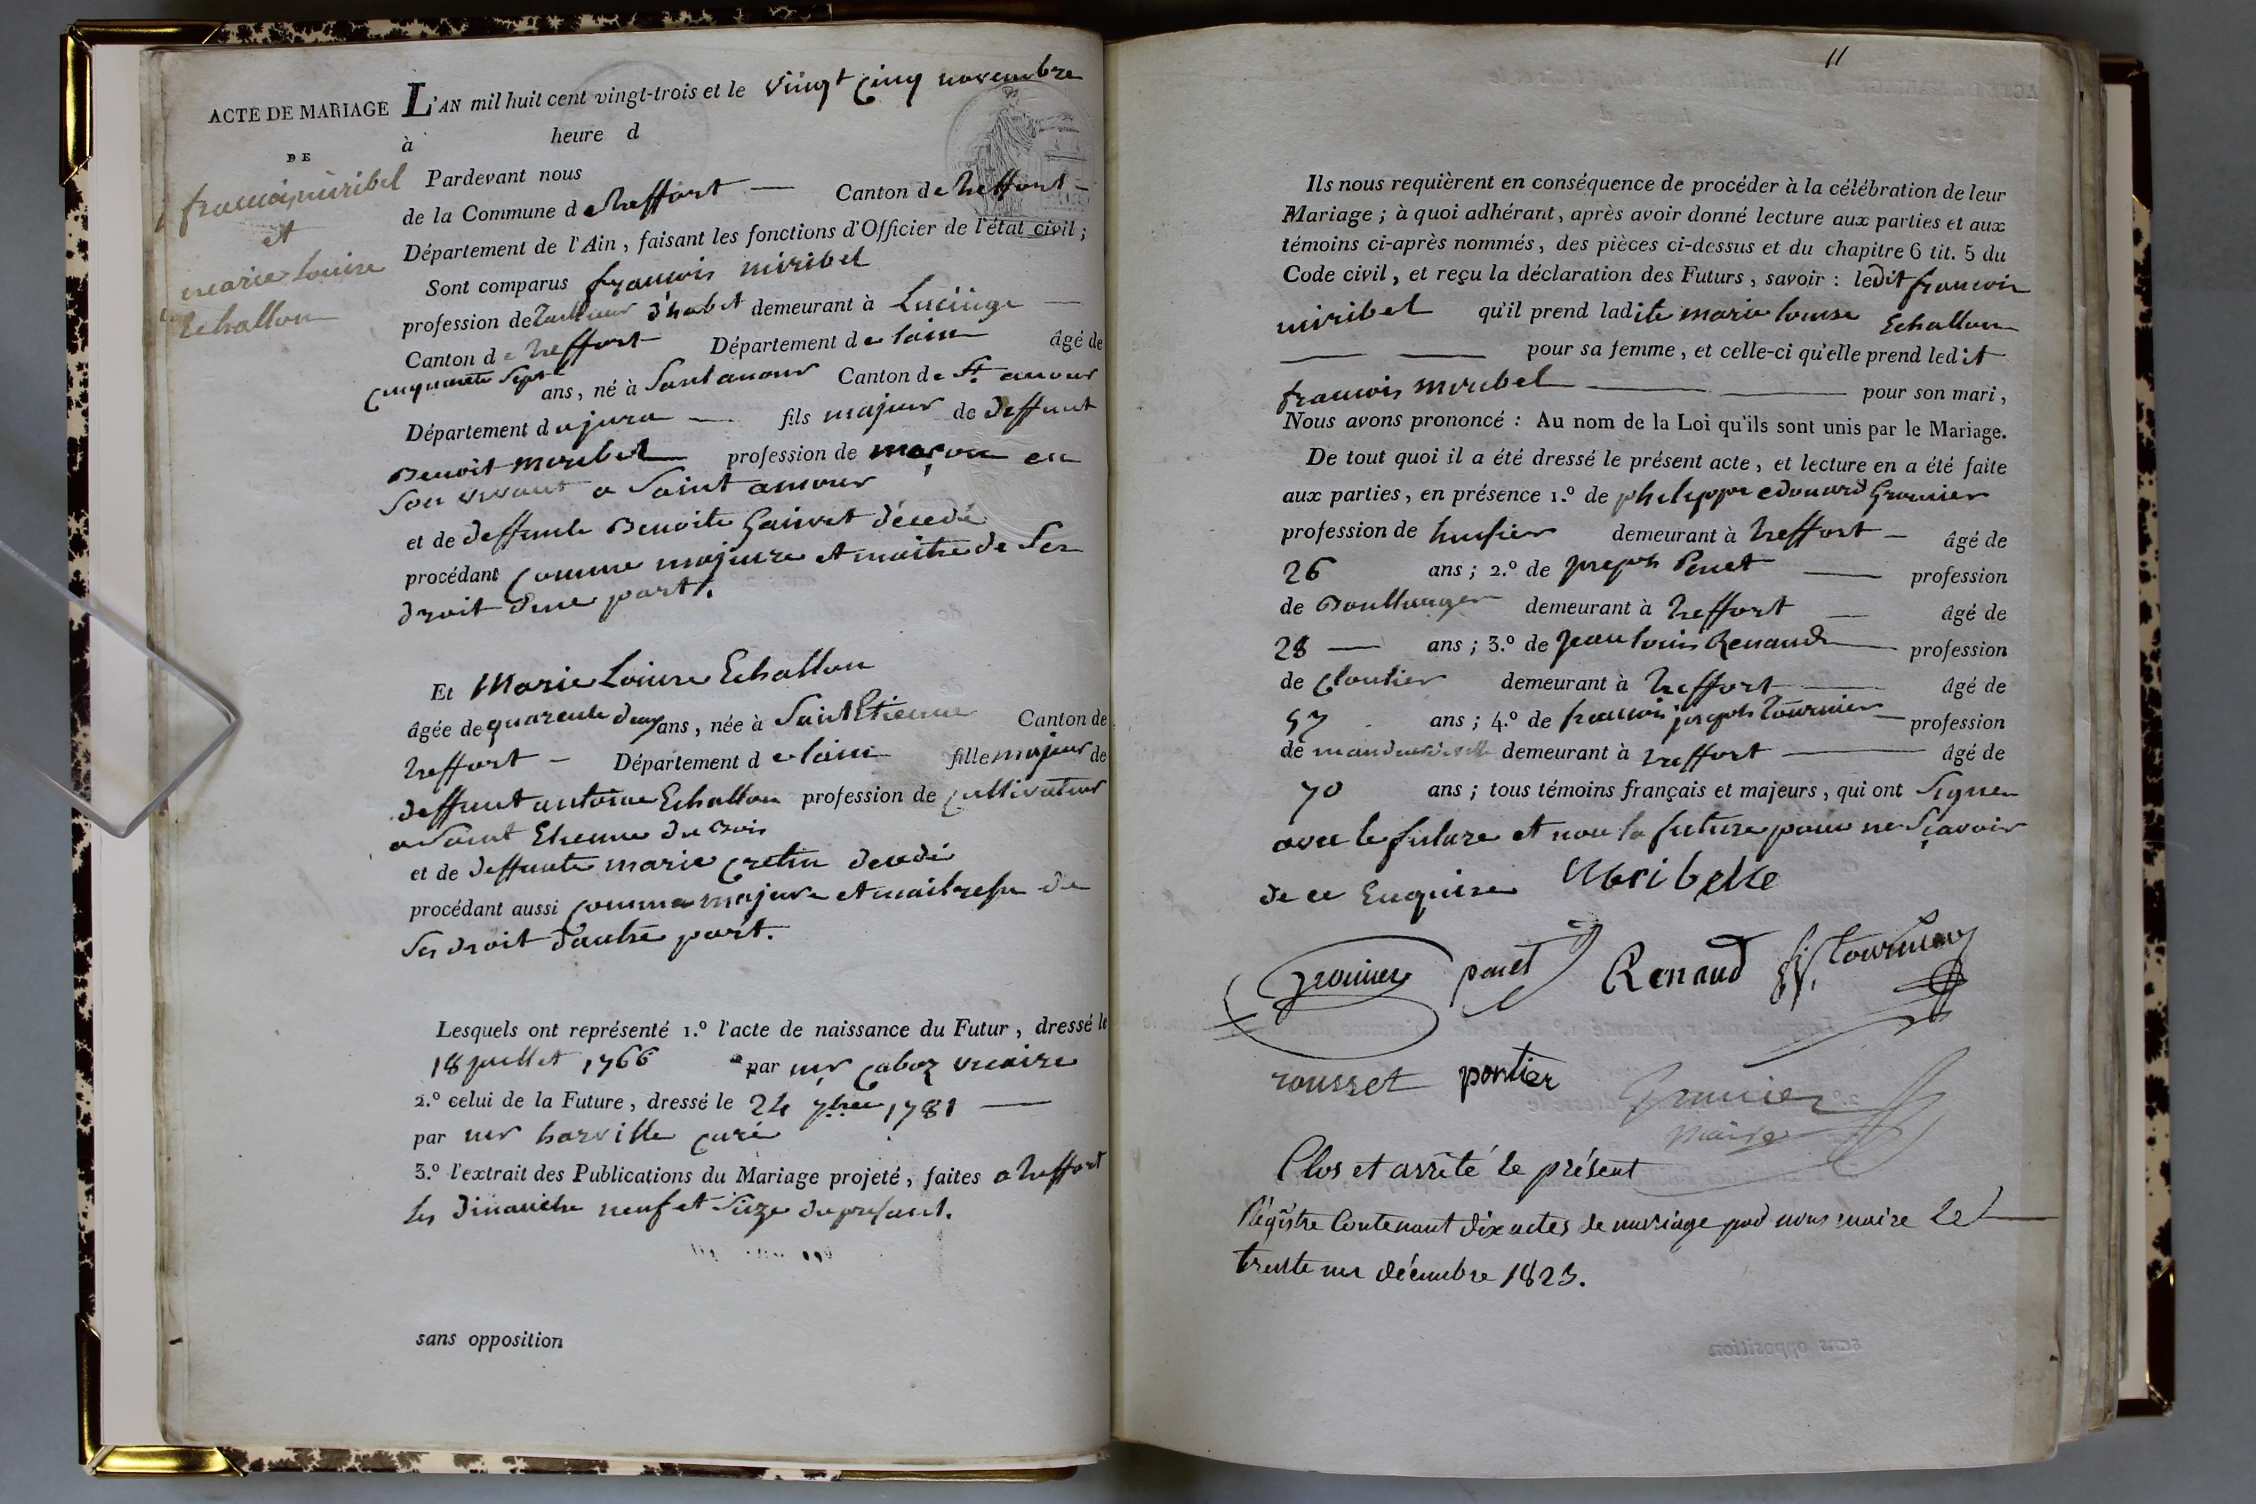 ACTE DE MARIAGE
DE
françois miribel
et
marie louise
Echallon
L'AN mil huit cent vingt-trois et le vingt cinq novembre
à heure d
Pardevant nous
de la Commune de treffort — Canton de treffort —
Département de l'Ain, faisant les fonctions d'Officier de l'état civil;
Sont comparus françois miribel
profession de tailleur d'habit demeurant à
Canton de treffort Département de lain âgé de
cinquante sept ans, né à Saintamour Canton de St. amour
Département du jura — fils majeur de deffunt
Benoit miribel profession de maçon en
son vivant a Saint amour
et de deffunte Benoite décedé
procédant comme majeure et maitre de ses
droit d'une part.
Et Marie Louise Echallon
âgée de quarente deux ans, née à Saint Etienne Canton de
treffort — Département de lain fille majeur de
deffunt antoine Echallon profession de cultivateur
a Saint Etienne du Bois
et de deffunte marie cretin decedé
procédant aussi comme majeure et maitresse de
ses droit d'autre part.
Lesquels ont représenté 1.º l'acte de naissance du Futur, dressé le
18 juillet 1766 par mr vicaire
2.º celui de la Future, dressé le 24 7bre 1781 —
par mr harville curé
3.º l'extrait des Publications du Mariage projeté, faites a treffort
les dimanche neuf et Sieze du présent.
sans opposition
11
Ils nous requièrent en conséquence de procéder à la célébration de leur
Mariage; à quoi adhérant, après avoir donné lecture aux parties et aux
témoins ci-après nommés, des pièces ci-dessus et du chapitre 6 tit. 5 du
Code civil, et reçu la déclaration des Futurs, savoir: ledit françois
miribel qu'il prend ladite marie louise Echallon
— — pour sa femme, et celle-ci qu'elle prend ledit
francois miribel — — pour son mari,
Nous avons prononcé: Au nom de la Loi qu'ils sont unis par le Mariage.
De tout quoi il a été dressé le présent acte, et lecture en a été faite
aux parties, en présence 1.º de philippe edouard Gromier
profession de huissier demeurant à treffort — âgé de
26 ans; 2.º de joseph Penet — profession
de Boullanger demeurant à treffort — âgé de
28 — ans; 3.º de jean louis Renaud — profession
de cloutier demeurant à treffort — âgé de
57 ans; 4.º de francois joseph tournier — profession
de demeurant à treffort — âgé de
70 ans; tous témoins français et majeurs, qui ont signer
avec le future et non la future pour ne sçavoir
de ce Enquise Meribelle
Gromier penet Renaud fj. tournier
rousset pontier Gromier
maire
Clos et arrêté le présent
Régistre Contenant dix actes de mariage par nous maire le —
trente un décembre 1823.